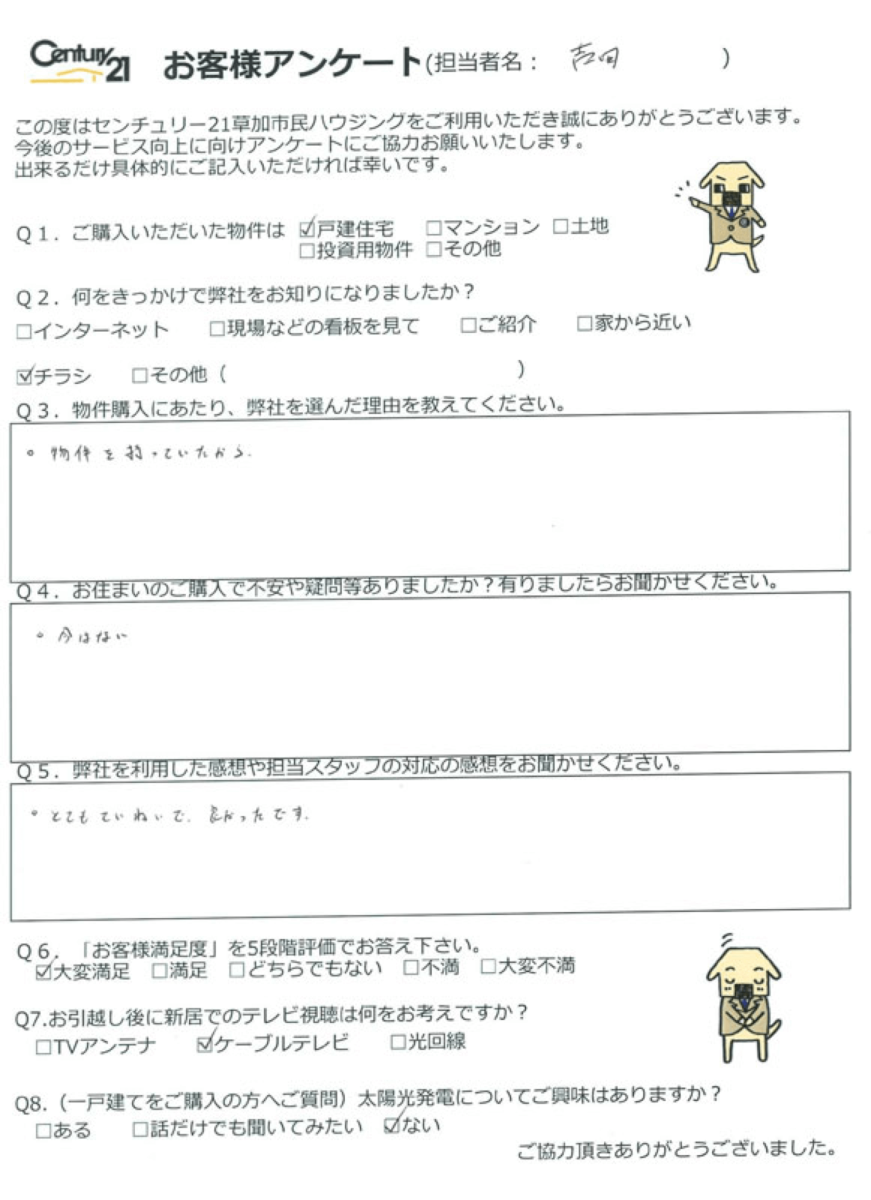 Century 21 お客様アンケート(担当者名： 吉田 ）
この度はセンチュリー21草加市民ハウジングをご利用いただき誠にありがとうございます。
今後のサービス向上に向けアンケートにご協力お願いいたします。
出来るだけ具体的にご記入いただければ幸いです。
Ｑ１．ご購入いただいた物件は ☑戸建住宅 □マンション □土地
□投資用物件 □その他
Ｑ２．何をきっかけで弊社をお知りになりましたか？
□インターネット □現場などの看板を見て □ご紹介 □家から近い
☑チラシ □その他（ ）
Ｑ３．物件購入にあたり、弊社を選んだ理由を教えてください。
。物件を持っていたから.
Ｑ４．お住まいのご購入で不安や疑問等ありましたか？有りましたらお聞かせください。
。今はない
Ｑ５．弊社を利用した感想や担当スタッフの対応の感想をお聞かせください。
。とてもていねいで、良かったです.
Ｑ６．「お客様満足度」を5段階評価でお答え下さい。
☑大変満足 □満足 □どちらでもない □不満 □大変不満
Q7.お引越し後に新居でのテレビ視聴は何をお考えですか？
□TVアンテナ ☑ケーブルテレビ □光回線
Q8.（一戸建てをご購入の方へご質問）太陽光発電についてご興味はありますか？
□ある □話だけでも聞いてみたい ☑ない
ご協力頂きありがとうございました。